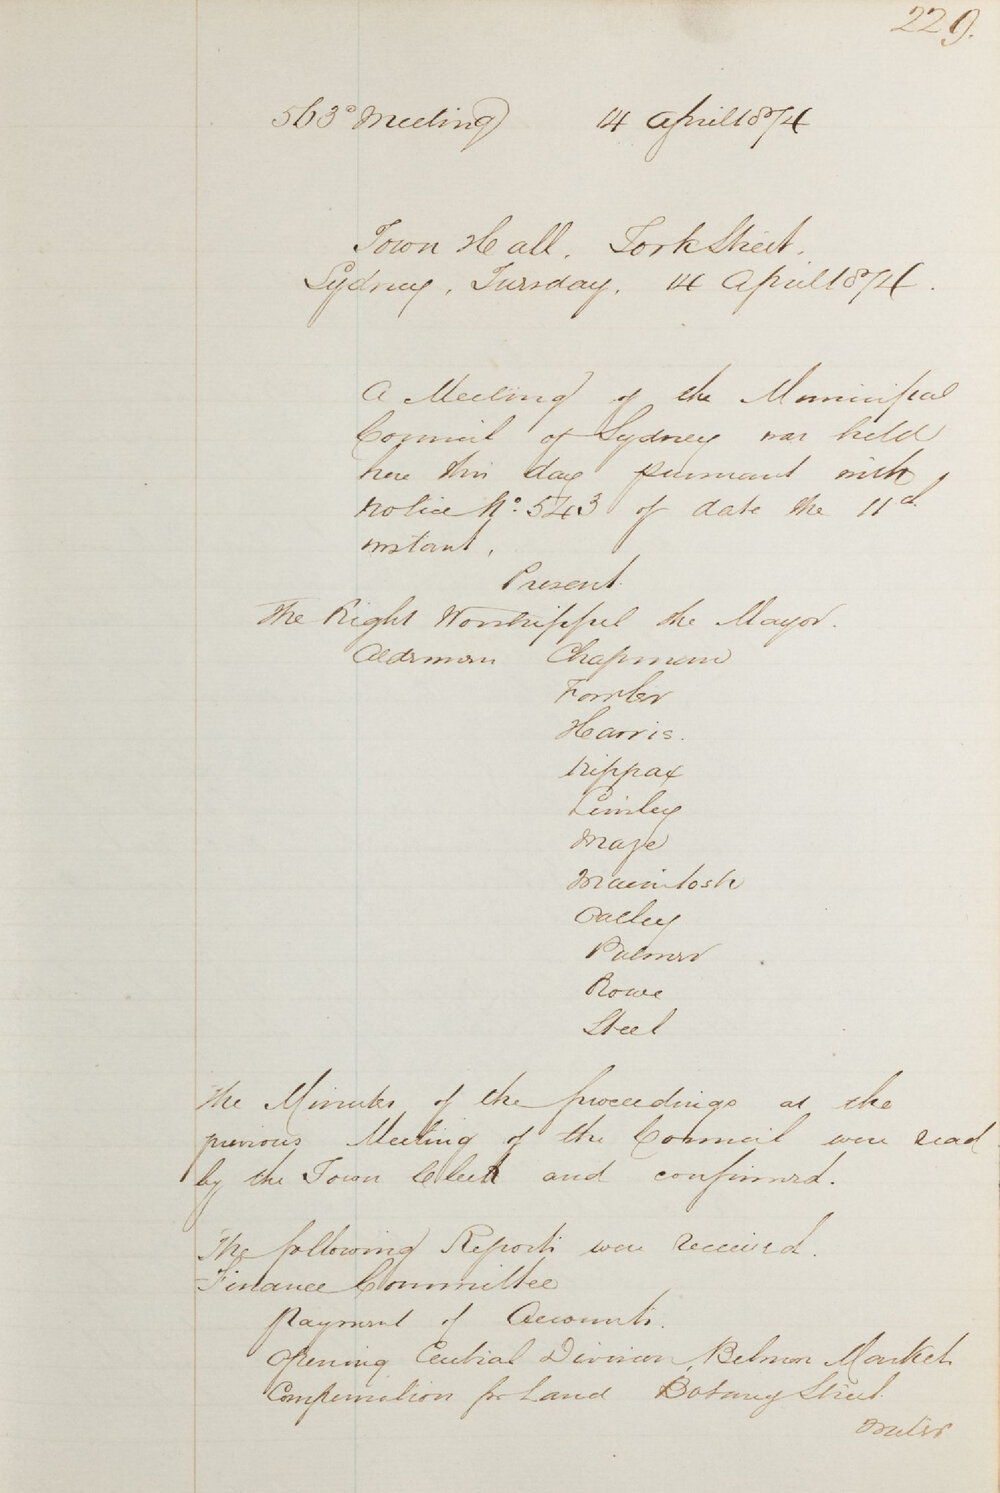 229.
563° Meeting 14 April 1874
Town Hall, York Street,
Sydney, Tuesday, 14 April 1874.
A Meeting of the Municipal
Council of Sydney was held
here this day pursuant with
notice No. 543 of date the 11th
instant,
Present.
The Right Worshipful the Mayor.
Aldermen Chapman
Fowler
Harris.
Kippax
Linsley
Maze
Macintosh
Oatley
Palmer
Rowe
Steel
The Minutes of the proceedings at the
previous Meeting of the Council were read
by the Town Clerk and confirmed.
The following Reports were received.
Finance Committee
Payment of Accounts.
Opening Central Division, Belmore Market
Compensation for Land Botany Street
Water